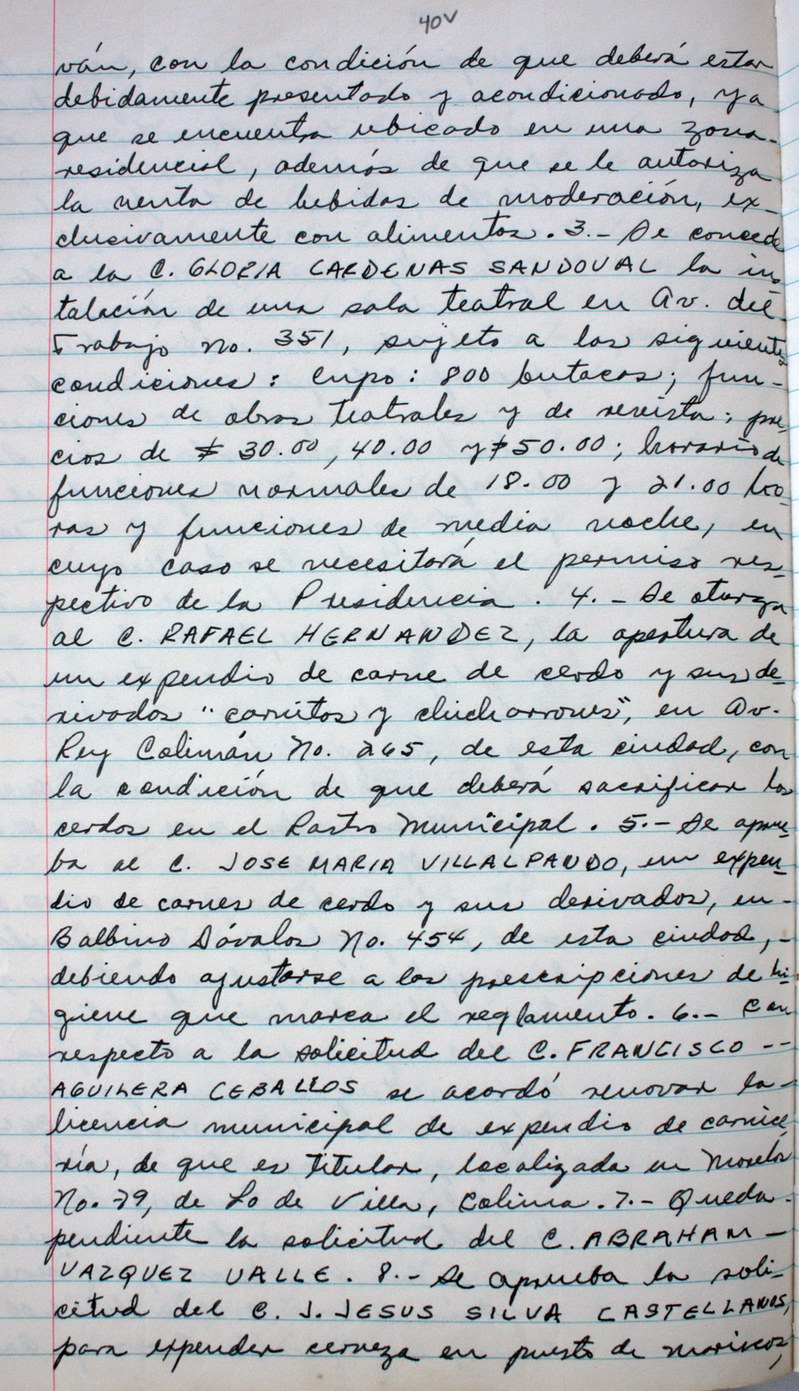 40v
ván, con la condición de que deberá estar
debidamente presentado y acondicionado, ya
que se encuentra ubicado en una zona-
residencial, además de que se le autoriza
la venta de bebidas de moderación, ex-
clusivamente con alimentos. 3.- Se concede
a la C. GLORIA CARDENAS SANDOVAL la ins-
talación de una sala teatral en Av. del
Trabajo No. 351, sujeto a las siguientes
condiciones: Cupo: 800 butacas; fun-
ciones de obras teatrales y de revista; pre-
cios de $ 30.00, 40.00 y $50.00; horario de
funciones normales de 18.00 y 21.00 ho-
ras y funciones de media noche, en
cuyo caso se necesitará el permiso res-
pectivo de la Presidencia. 4.- Se otorga
al C. RAFAEL HERNANDEZ, la apertura de
un expendio de carne de cerdo y sus de-
rivados "carnitas y chicharrones", en Av.
Rey Colimán No. 265, de esta ciudad, con
la condición de que deberá sacrificar los
cerdos en el Rastro Municipal. 5.- Se aprue-
ba al C. JOSE MARIA VILLALPANDO, un expen-
dio de carnes de cerdo y sus derivados, en-
Balbino Dávalos No. 454, de esta ciudad,-
debiendo ajustarse a las prescripciones de hi-
giene que marca el reglamento. 6.- Con
respecto a la solicitud del C. FRANCISCO --
AGUILERA CEBALLOS se acordó renovar la-
licencia municipal de expendio de carnice-
ría, de que es Titular, localizada en Morelos
No. 79, de Lo de Villa, Colima. 7.- Queda-
pendiente la solicitud del C. ABRAHAM -
VAZQUEZ VALLE. 8.- Se aprueba la soli-
citud del C. J. JESUS SILVA CASTELLANOS,
para expender cerveza en puesto de mariscos,